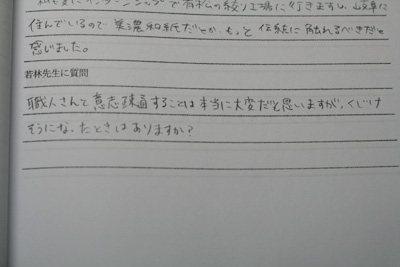 私も夏にインターンシップで有松の絞り工場に行きますし、岐阜に
住んでいるので美濃和紙だとか、もっと伝統に触れるべきだと
感じました。
若林先生に質問
職人さんと意志疎通することは本当に大変だと思いますが、くじけ
そうになったときはありますか?